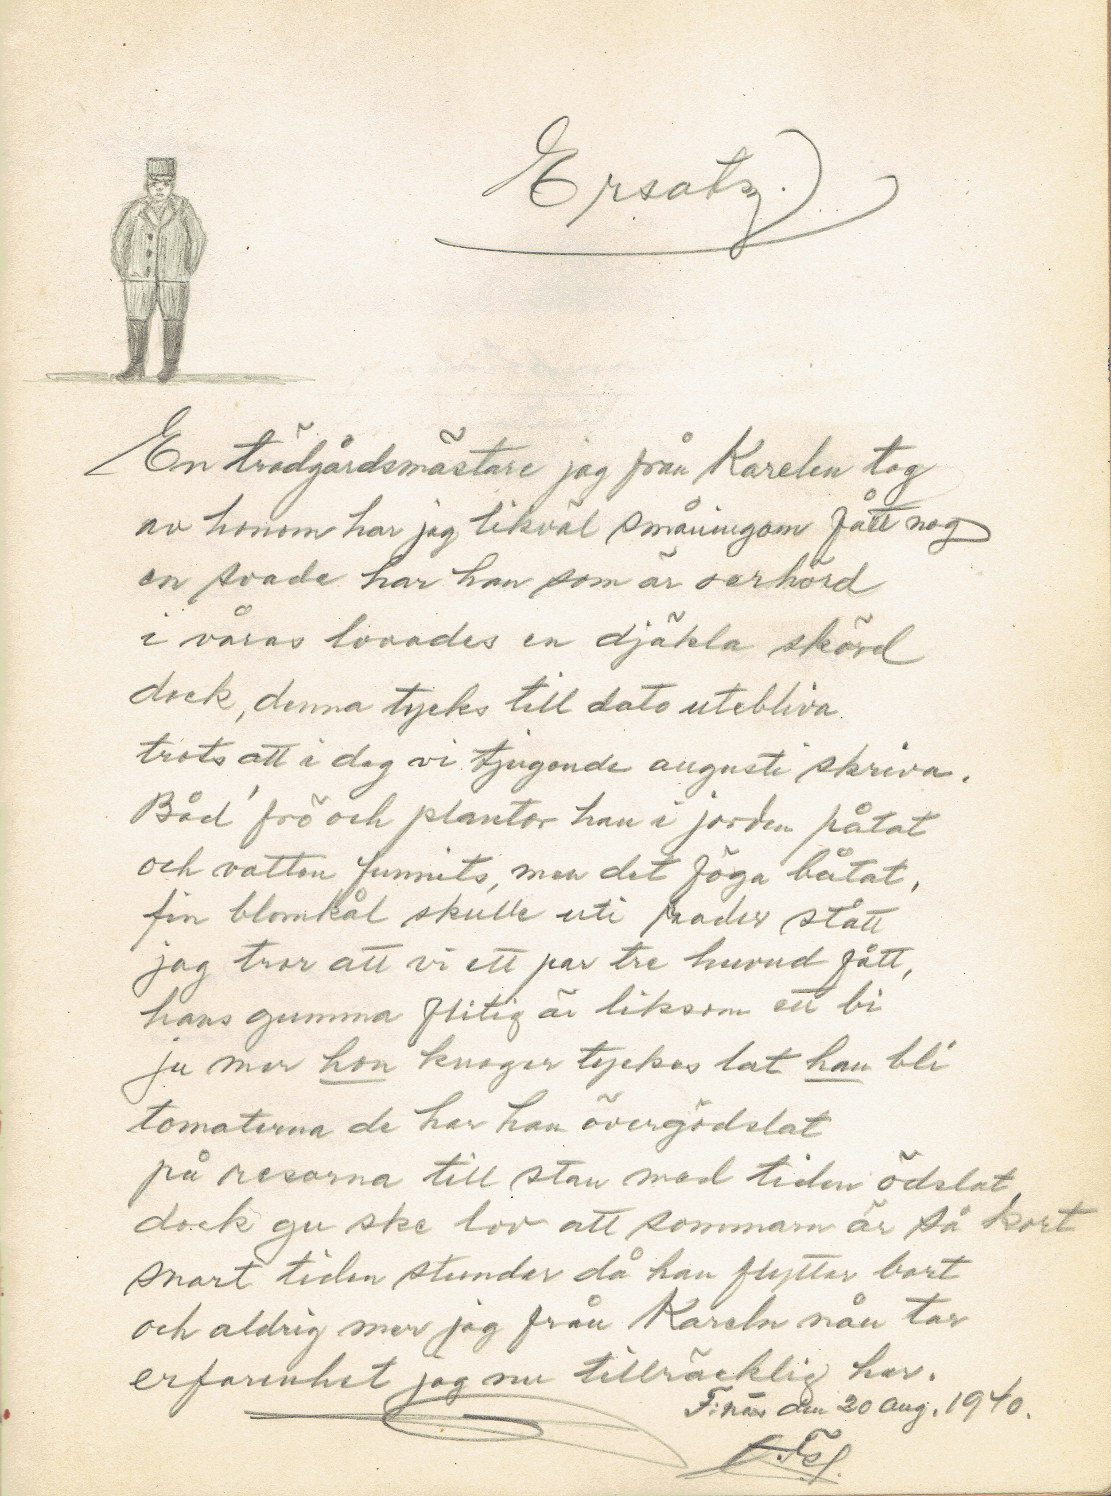 Ersatz.
En trädgårdsmästare jag från Karelen tog
av honom har jag likväl småningom fått nog
en svada har han som är oerhörd
i våras lovades en djäkla skörd
dock, denna tycks till dato utebliva
trots att i dag vi tjugonde augusti skriva.
Båd' frö och plantor han i jorden påtat
och vatten funnits, men det föga båtat,
fin blomkål skulle uti rader stått
jag tror att vi ett par tre huvud fått,
hans gumma flitig är liksom ett bi
ju mer hon knogar tyckes lat han bli
tomaterna de har han övergödslat
på resorna till stan med tiden ödslat,
dock gu ske lov att sommarn är så kort
snart tiden stundar då han flyttar bort
och aldrig mer jag från Kareln nån tar
erfarenhet jag nu tillräcklig har.
den 20 aug. 1940.